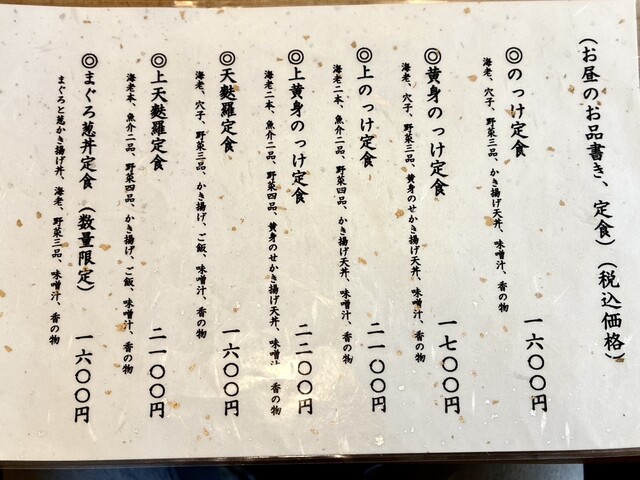 （お昼のお品書き、定食）（税込価格）
◎のっけ定食
海老、穴子、野菜三品、かき揚げ天丼、味噌汁、香の物
一六〇〇円
◎黄身のっけ定食
海老、穴子、野菜三品、黄身のせかき揚げ天丼、味噌汁、香の物
一七〇〇円
◎上のっけ定食
海老二本、魚介二品、野菜四品、かき揚げ天丼、味噌汁、香の物
二一〇〇円
◎上黄身のっけ定食
海老二本、魚介二品、野菜四品、黄身のせかき揚げ天丼、味噌汁 香の物
二二〇〇円
◎天麩羅定食
海老、穴子、野菜三品、かき揚げ、ご飯、味噌汁、香の物
一六〇〇円
◎上天麩羅定食
海老二本、魚介二品、野菜四品、かき揚げ、ご飯、味噌汁、香の物
二一〇〇円
◎まぐろ葱丼定食（数量限定）
まぐろと葱かき揚げ丼、海老、野菜三品、味噌汁、香の物
一六〇〇円